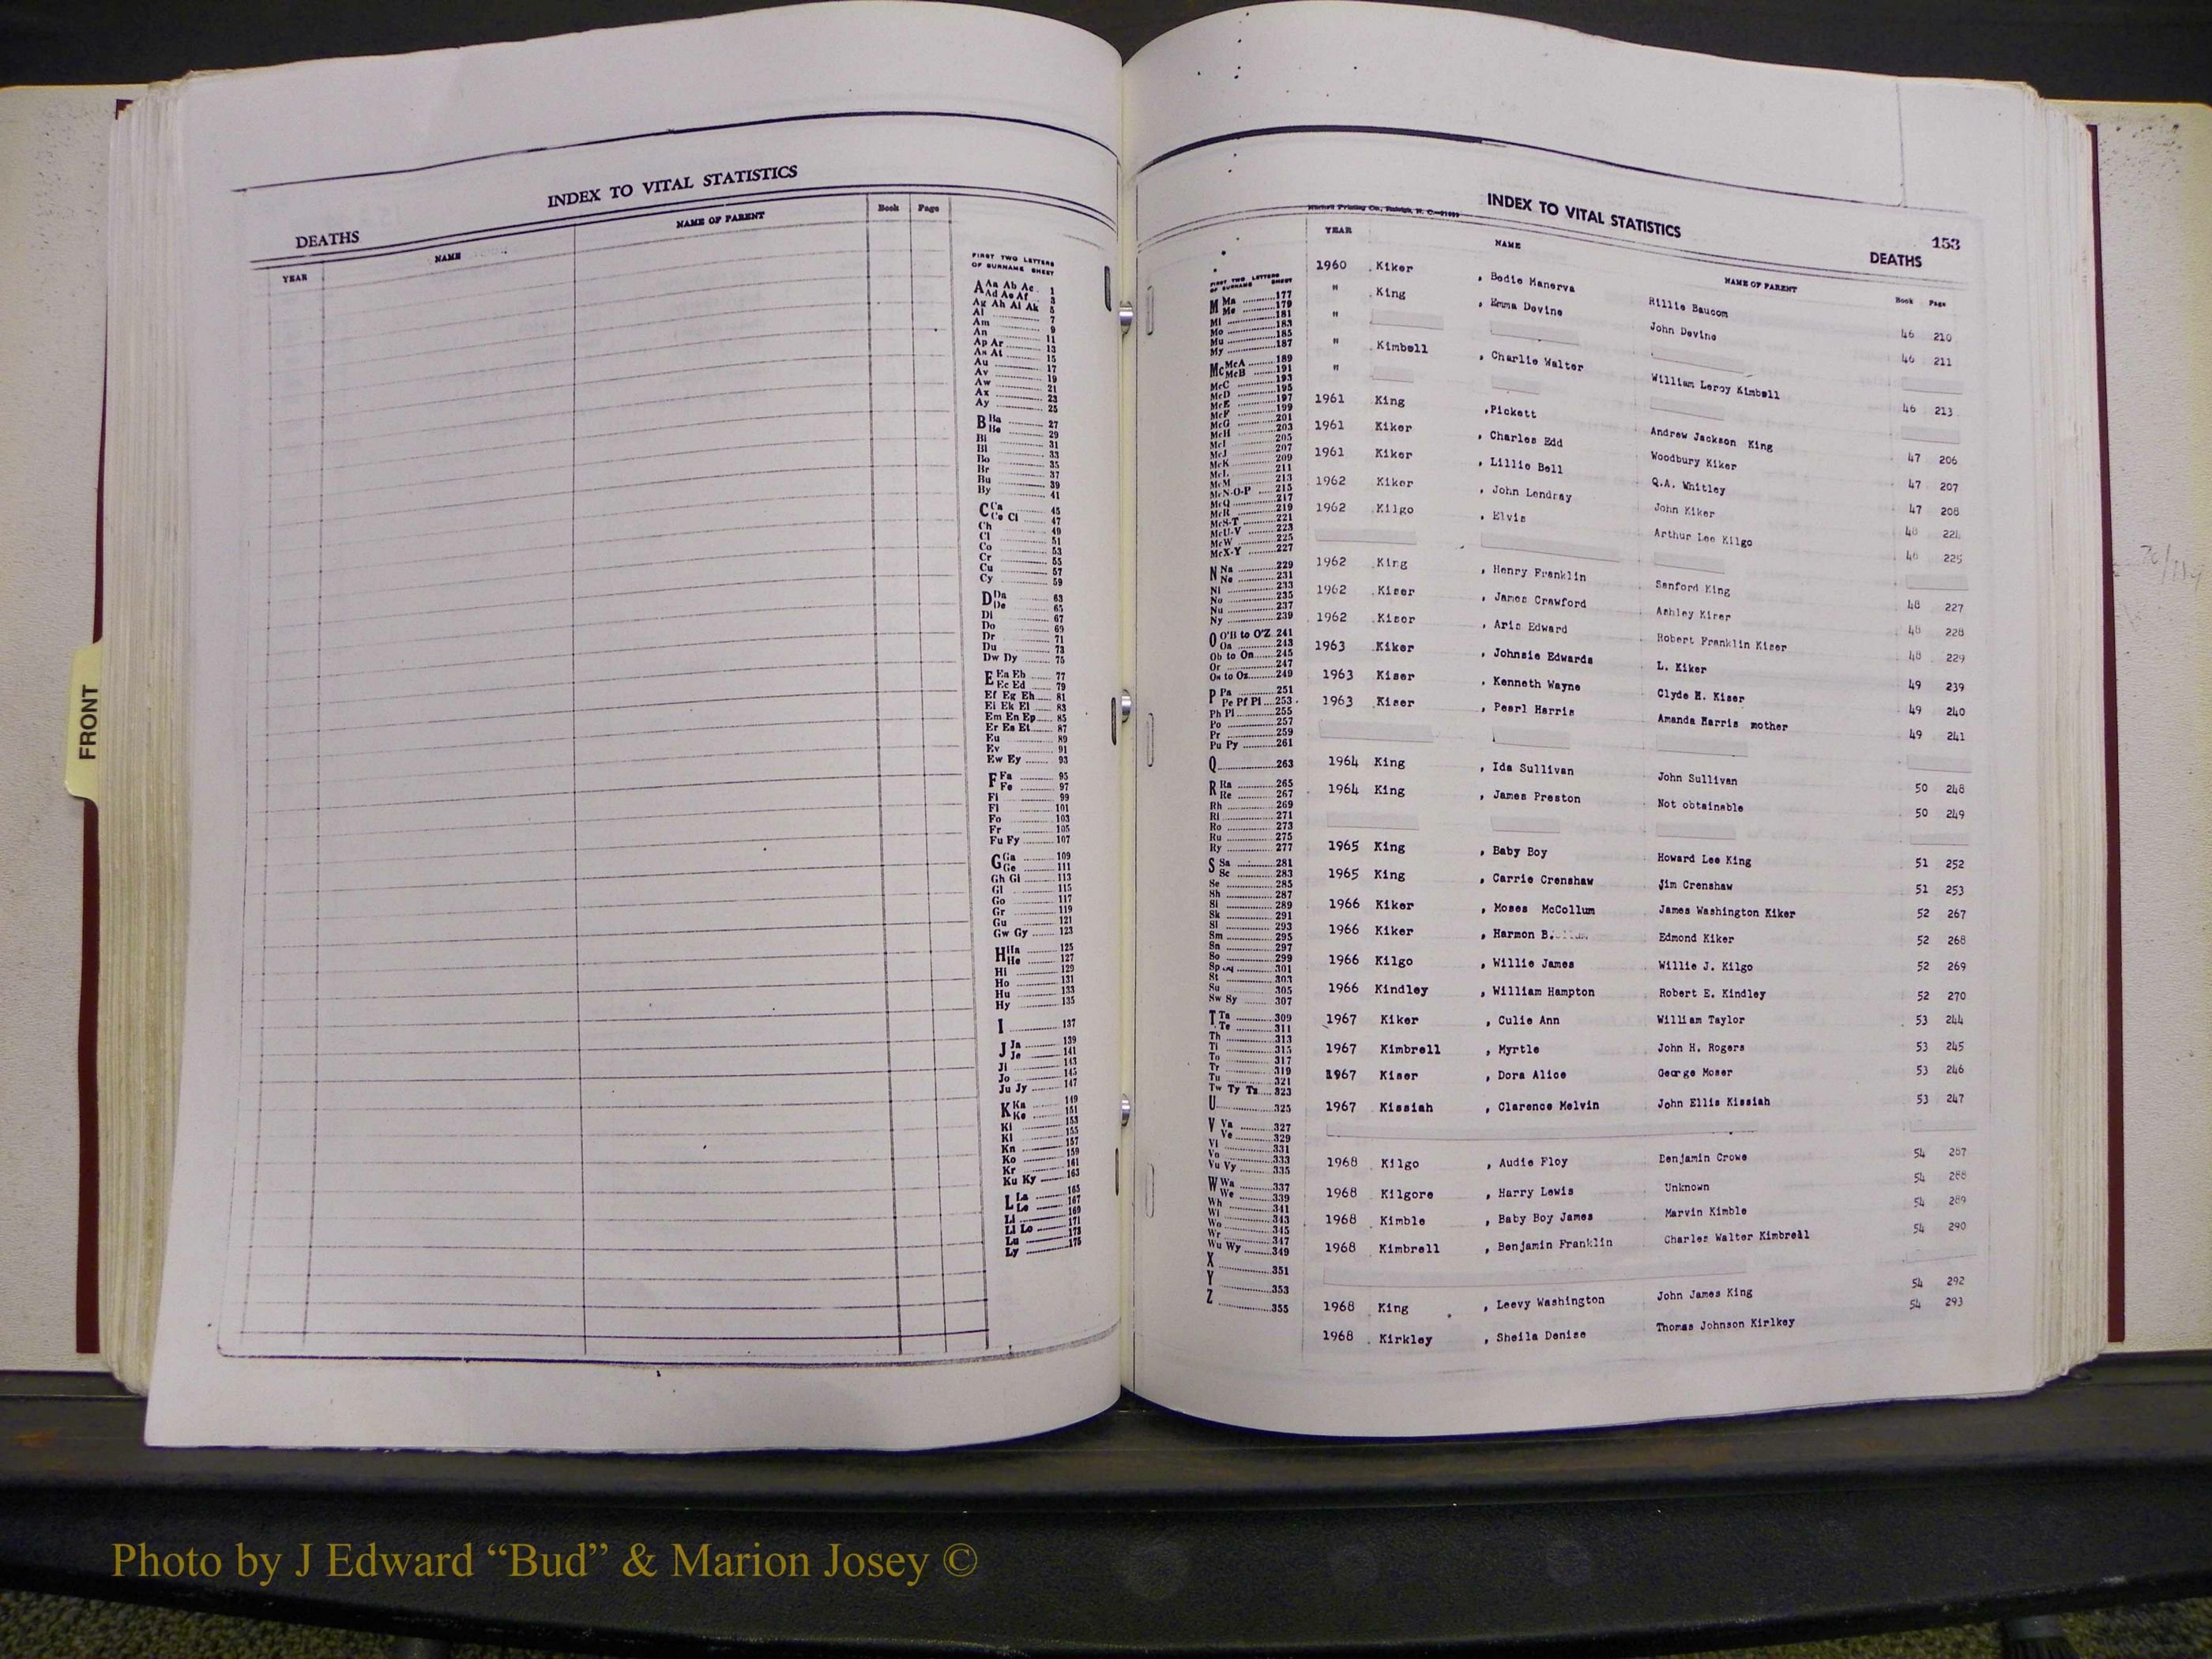 FRONT
INDEX TO VITAL STATISTICS
DEATHS
YEAR NAME NAME OF PARENT Book Page
FIRST TWO LETTERS
OF SURNAME SHEET
A Aa Ab Ac 1
Ad Ae Af 3
Ag Ah Ai Ak 5
Al 7
Am 9
An 11
Ap Ar 13
As At 15
Au 17
Av 19
Aw 21
Ax 23
Ay 25
B Ba 27
Be 29
Bi 31
Bl 33
Bo 35
Br 37
Bu 39
By 41
C Ca 45
Ce Ci 47
Ch 49
Cl 51
Co 53
Cr 55
Cu 57
Cy 59
D Da 63
De 65
Di 67
Do 69
Dr 71
Du 73
Dw Dy 75
E Ea Eb 77
Ec Ed 79
Ef Eg Eh 81
Ei Ek El 83
Em En Ep 85
Er Es Et 87
Eu 89
Ev 91
Ew Ey 93
F Fa 95
Fe 97
Fi 99
Fl 101
Fo 103
Fr 105
Fu Fy 107
G Ga 109
Ge 111
Gh Gi 113
Gl 115
Go 117
Gr 119
Gu 121
Gw Gy 123
H Ha 125
He 127
Hi 129
Ho 131
Hu 133
Hy 135
I 137
J Ja 139
Je 141
Ji 143
Jo 145
Ju Jy 147
K Ka 149
Ke 151
Ki 153
Kl 155
Kn 157
Ko 159
Kr 161
Ku Ky 163
L La 165
Le 167
Li 169
Ll Lo 171
Lu 173
Ly 175
INDEX TO VITAL STATISTICS
153
DEATHS
YEAR NAME NAME OF PARENT Book Page
FIRST TWO LETTERS
OF SURNAME SHEET
M Ma 177
Me 179
Mi 181
Mo 183
Mu 185
My 187
Mc McA 189
McB 191
McC 193
McD 195
McE 197
McF 199
McG 201
McH 203
McI 205
McJ 207
McK 209
McL 211
McM 213
McN-O-P 215
McQ 217
McR 219
McS-T 221
McU-V 223
McW 225
McX-Y 227
N Na 229
Ne 231
Ni 233
No 235
Nu 237
Ny 239
O O'B to O'Z 241
Oa 243
Ob to On 245
Or 247
Os to Oz 249
P Pa 251
Pe Pf Pi 253
Ph Pl 255
Po 257
Pr 259
Pu Py 261
Q 263
R Ra 265
Re 267
Rh 269
Ri 271
Ro 273
Ru 275
Ry 277
S Sa 281
Sc 283
Se 285
Sh 287
Si 289
Sk 291
Sl 293
Sm 295
Sn 297
So 299
Sp 301
St 303
Su 305
Sw Sy 307
T Ta 309
Te 311
Th 313
Ti 315
To 317
Tr 319
Tu 321
Tw Ty Tz 323
U 325
V Va 327
Ve 329
Vi 331
Vo 333
Vu Vy 335
W Wa 337
We 339
Wh 341
Wi 343
Wo 345
Wr 347
Wu Wy 349
X 351
Y 353
Z 355
1960 Kiker , Bedie Manerva Hillie Baucom 46 210
" King , Emma Devine John Devine 46 211
"
" Kimbell , Charlie Walter William Leroy Kimbell 46 213
"
1961 King , Pickett Andrew Jackson King 47 206
1961 Kiker , Charles Edd Woodbury Kiker 47 207
1961 Kiker , Lillie Bell Q.A. Whitley 47 208
1962 Kiker , John Lendray John Kiker 48 224
1962 Kilgo , Elvis Arthur Lee Kilgo 48 225
1962 King , Henry Franklin Sanford King 48 227
1962 Kiser , James Crawford Ashley Kiser 48 228
1962 Kiser , Aris Edward Robert Franklin Kiser 48 229
1963 Kiker , Johnsie Edwards L. Kiker 49 239
1963 Kiser , Kenneth Wayne Clyde H. Kiser 49 240
1963 Kiser , Pearl Harris Amanda Harris mother 49 241
1964 King , Ida Sullivan John Sullivan 50 248
1964 King , James Preston Not obtainable 50 249
1965 King , Baby Boy Howard Lee King 51 252
1965 King , Carrie Crenshaw Jim Crenshaw 51 253
1966 Kiker , Moses McCollum James Washington Kiker 52 267
1966 Kiker , Harmon B. Edmond Kiker 52 268
1966 Kilgo , Willie James Willie J. Kilgo 52 269
1966 Kindley , William Hampton Robert E. Kindley 52 270
1967 Kiker , Culie Ann William Taylor 53 244
1967 Kimbrell , Myrtle John H. Rogers 53 245
1967 Kiser , Dora Alice George Moser 53 246
1967 Kissiah , Clarence Melvin John Ellis Kissiah 53 247
1968 Kilgo , Audie Floy Benjamin Crowe 54 287
1968 Kilgore , Harry Lewis Unknown 54 288
1968 Kimble , Baby Boy James Marvin Kimble 54 289
1968 Kimbrell , Benjamin Franklin Charles Walter Kimbrell 54 290
1968 King , Leevy Washington John James King 54 292
1968 Kirkley , Sheila Denise Thomas Johnson Kirlkey 54 293
Photo by J Edward “Bud” & Marion Josey ©